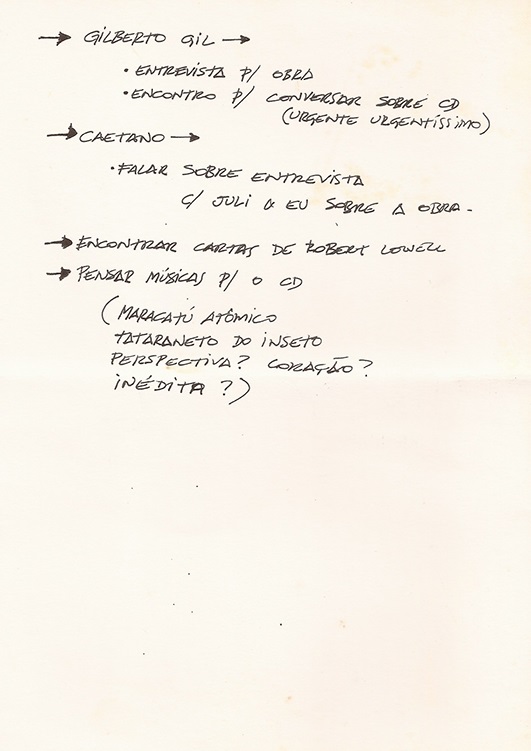 → GILBERTO GIL →
• ENTREVISTA P/ OBRA
• ENCONTRO P/ CONVERSAR SOBRE CD
(URGENTE URGENTÍSSIMO)
→ CAETANO →
• FALAR SOBRE ENTREVISTA
C/ JULI & EU SOBRE A OBRA -
→ ENCONTRAR CARTAS DE ROBERT LOWELL
→ PENSAR MÚSICAS P/ O CD
(MARACATÚ ATÔMICO
TATARANETO DO INSETO
PERSPECTIVA? CORAÇÃO?
INÉDITA ?)